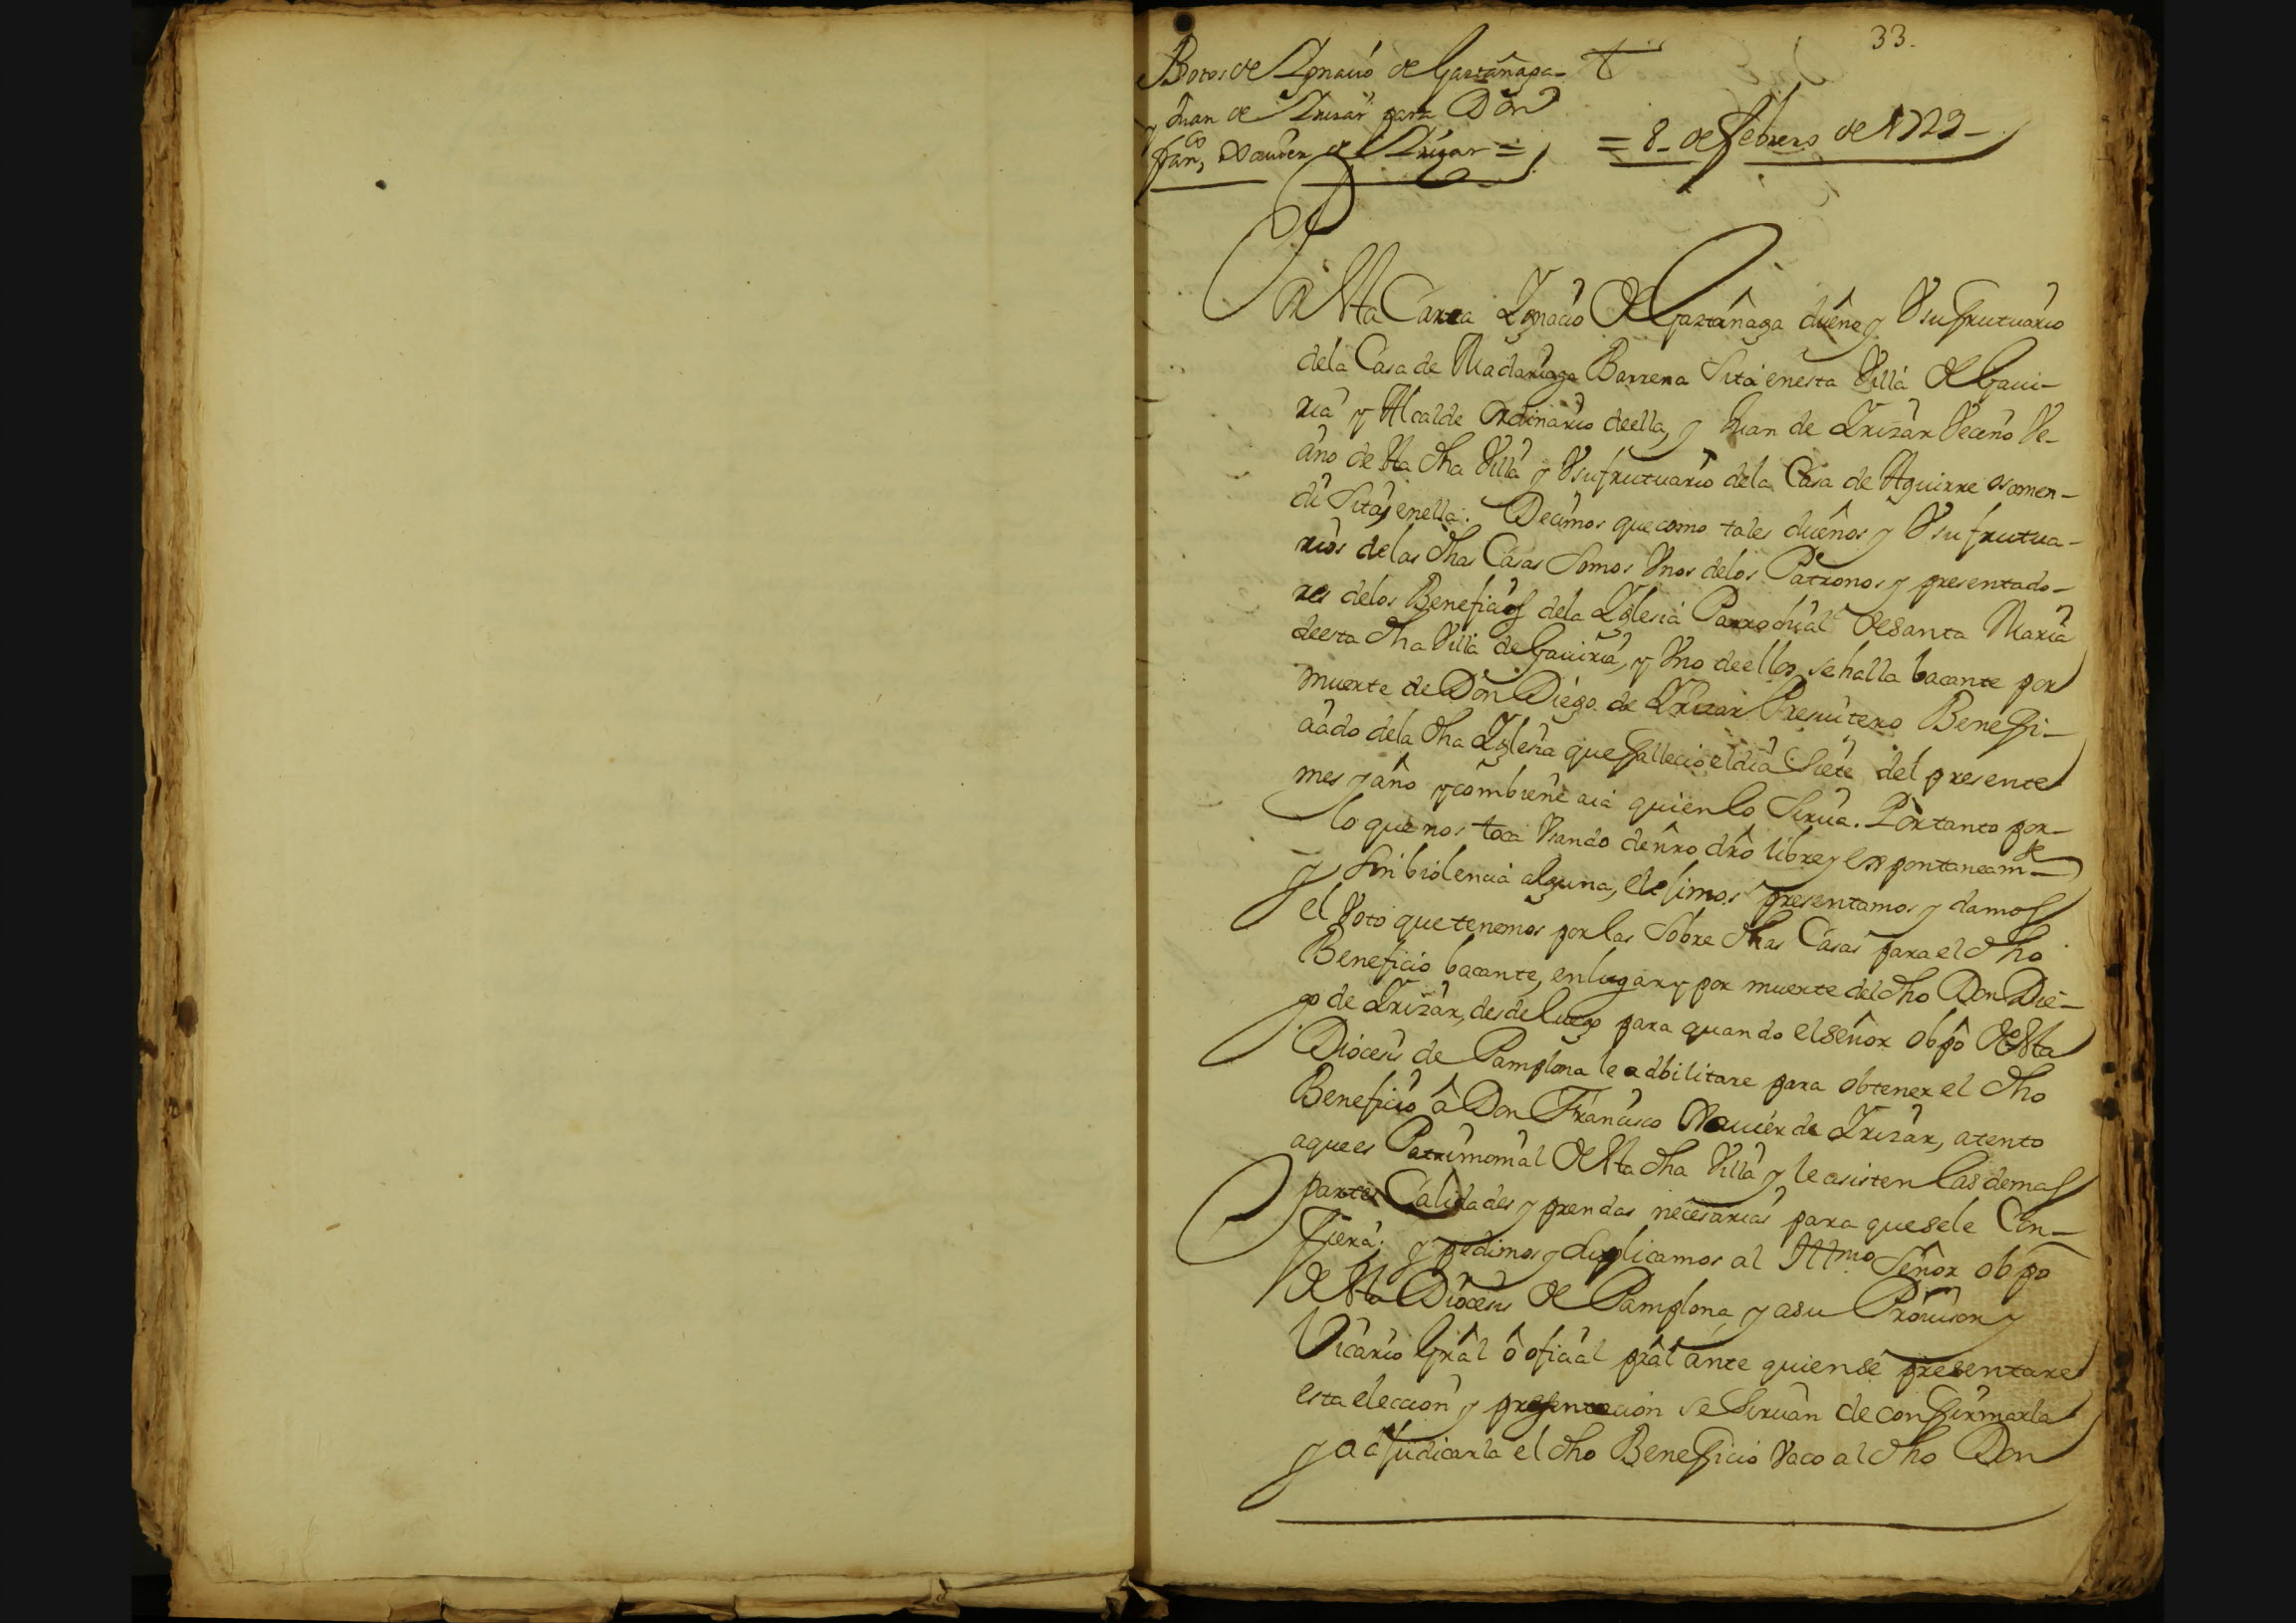 33.
Botos de Ygnacio de Gaztañaga
y Juan de Yrizar para Don
Franco Xauier de Yrizar =
= 8 - de febrero de 1729 -
Por Esta Carta Ygnacio de Gaztañaga dueño y Vsufrutuario
dela Casa de Madariaga Barrena Sita enesta Villa de Gaui-
ria y Alcalde Ordinario deella, y Juan de Yrizar Vecino Ve-
cino de Esta dha Villa y Vsufrutuario dela Casa de Aguirre
di Sitas enella. Decimos que como tales dueños y Vsufrutua-
rios delas dhas Casas Somos Vnos delos Patronos y presentado-
res delos Beneficios dela Yglesia Parrochial de Santa Maria
deesta dha Villa de Gauiria, y Vno deellos se halla bacante por
muerte de Don Diego de Yrizar Presuitero Benefi-
ciado dela dha Yglesia que fallecio el dia Siete del presente
mes y año y combiene aia quien lo Sirua. Por tanto por
lo que nos toca Vsando denro dro libre y espontaneamte
y Sin biolencia alguna, elejimos presentamos y damos
el Voto que tenemos por las Sobre dhas Casas para el dho
Beneficio bacante, en lugar y por muerte del dho Don Die-
go de Yrizar, desde luego para quando el señor Obpo de Esta
Diocesis de Pamplona le adbilitare para obtener el dho
Beneficio â Don Francisco Xauier de Yrizar, atento
aque es Patrimonial de Esta dha Villa y le asisten las demas
partes Calidades y prendas necesarias para quesele Con-
fiera: y pedimos y Suplicamos al Illmo Señor obpo
de Esta Diocesis de Pamplona y a su Prouisor y
Vicario Gral ô oficial pral ante quiense presentare
esta eleccion y presentacion se Siruan de confirmarla
y adjudicarla el dho Beneficio Vaco al dho Don